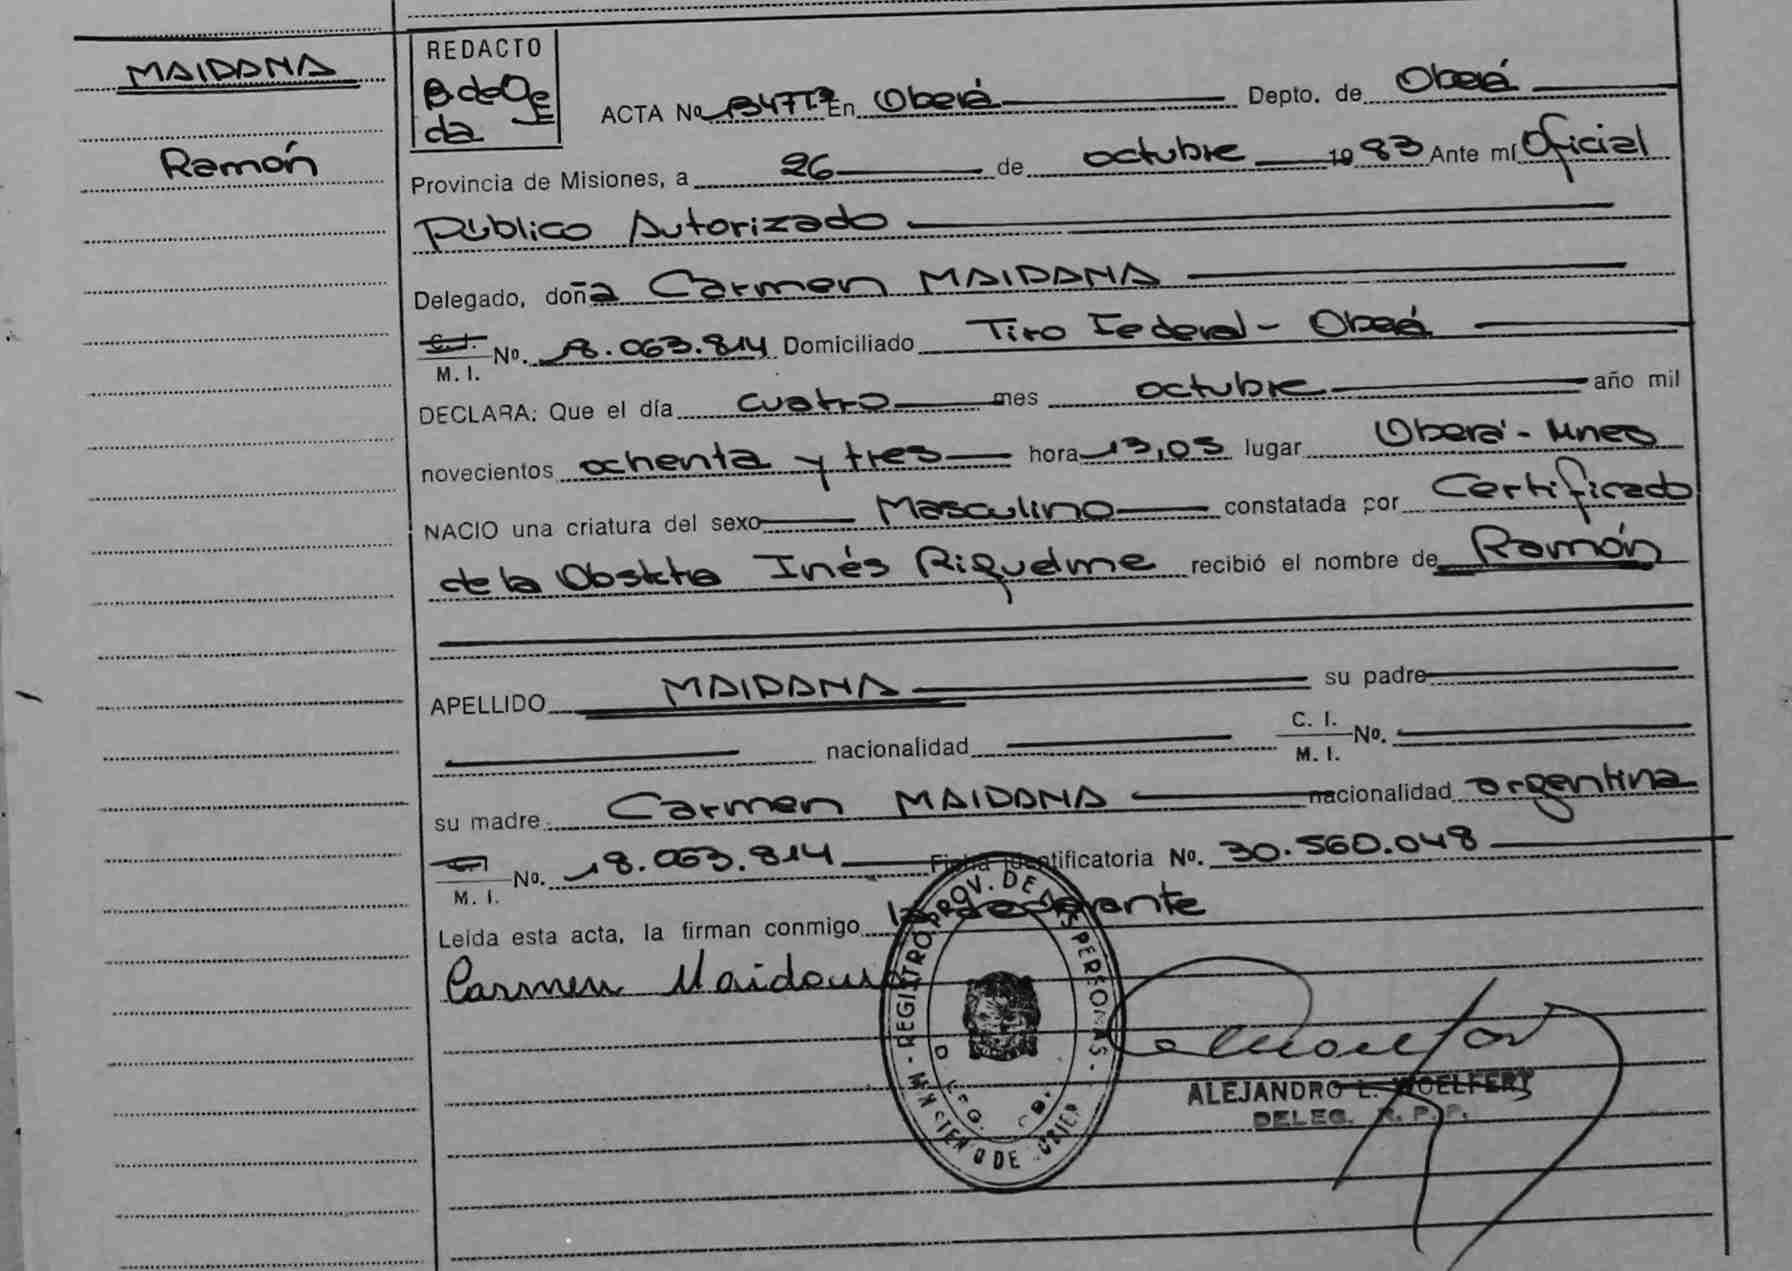 MAIDANA
Ramón
REDACTO
B de Oje
da
ACTA No En Oberá Depto. de Oberá
Provincia de Misiones, a 26 de octubre 1983 Ante mí Oficial
Público Autorizado
Delegado, doña Carmen MAIDANA
M. I. No. 18.063.814 Domiciliado Tiro Federal - Oberá
DECLARA: Que el día cuatro mes octubre año mil
novecientos ochenta y tres hora 13,05 lugar Oberá - Mnes
NACIO una criatura del sexo Masculino constatada por Certificado
de la Obstetra Inés Riquelme recibió el nombre de Ramón
APELLIDO MAIDANA su padre
nacionalidad C. I. M. I. No.
su madre Carmen MAIDANA nacionalidad argentina
M. I. No. 18.063.814 Ficha identificatoria No. 30.560.048
Leída esta acta, la firman conmigo la declarante
Carmen Maidana
REGISTRO PROV. DE LAS PERSONAS - MINISTERIO DE
ALEJANDRO L. WOELFERT
DELEG. R. P. P.